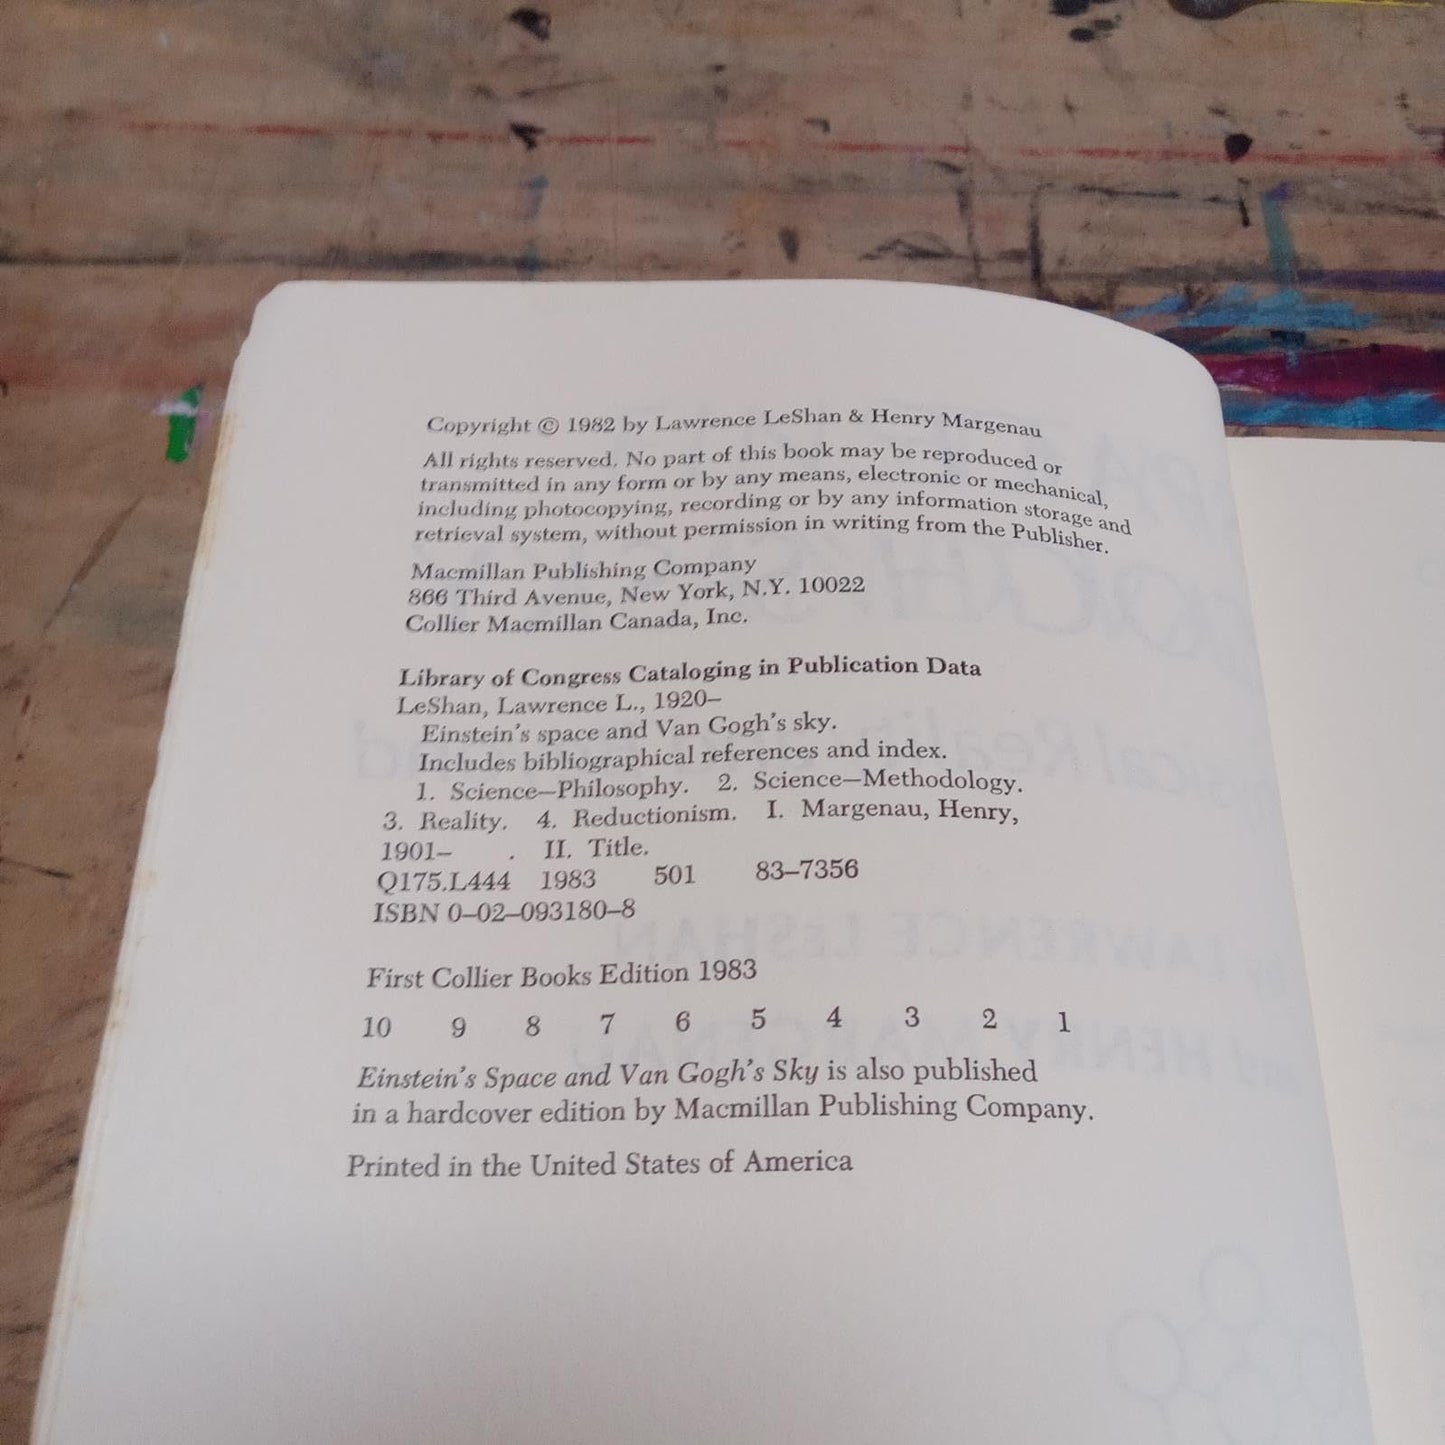 Copyright © 1982 by Lawrence LeShan & Henry Margenau
All rights reserved. No part of this book may be reproduced or
transmitted in any form or by any means, electronic or mechanical,
including photocopying, recording or by any information storage and
retrieval system, without permission in writing from the Publisher.
Macmillan Publishing Company
866 Third Avenue, New York, N.Y. 10022
Collier Macmillan Canada, Inc.
Library of Congress Cataloging in Publication Data
LeShan, Lawrence L., 1920–
Einstein's space and Van Gogh's sky.
Includes bibliographical references and index.
1. Science—Philosophy. 2. Science—Methodology.
3. Reality. 4. Reductionism. I. Margenau, Henry,
1901– . II. Title.
Q175.L444 1983 501 83–7356
ISBN 0–02–093180–8
First Collier Books Edition 1983
10 9 8 7 6 5 4 3 2 1
Einstein's Space and Van Gogh's Sky is also published
in a hardcover edition by Macmillan Publishing Company.
Printed in the United States of America